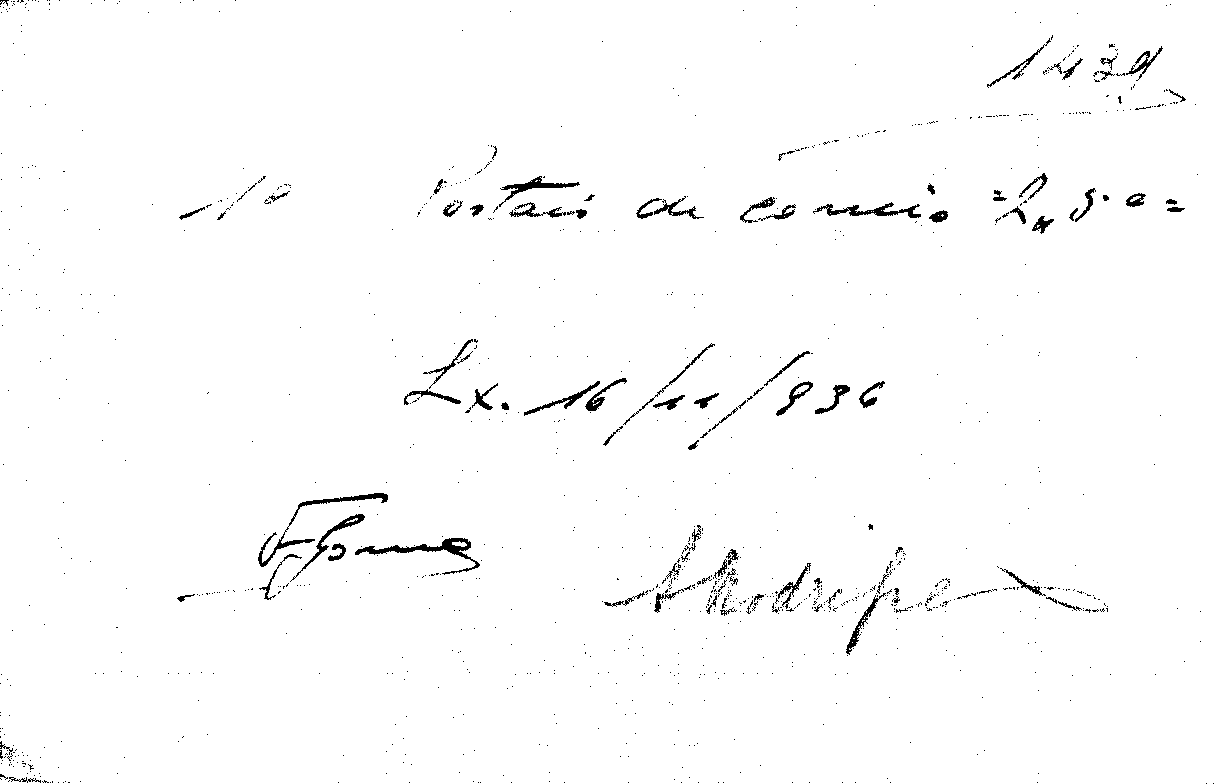 1439
1º Postais de correio =2
Lx. 16/11/936
F Gomes
A Rodrigues